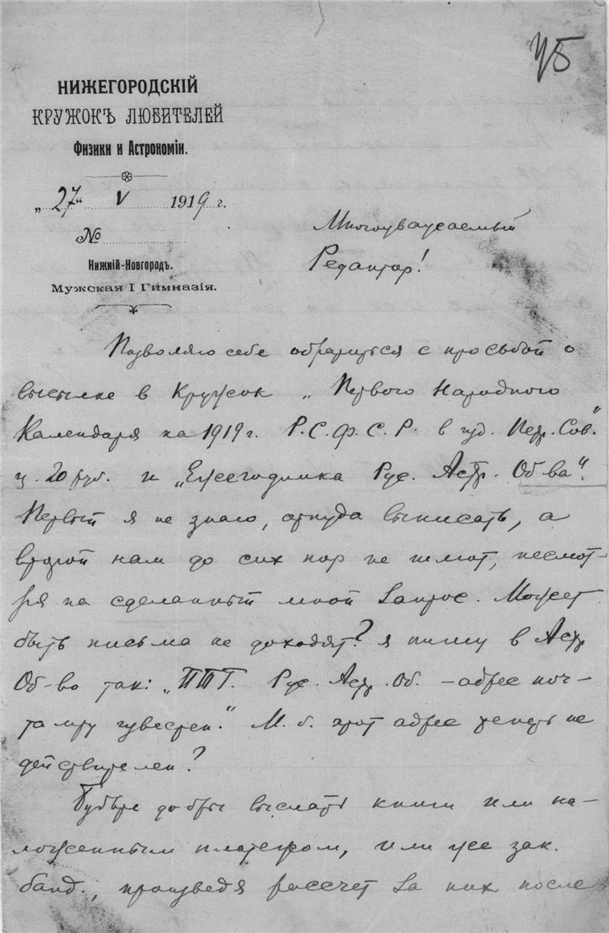 75
НИЖЕГОРОДСКІЙ
КРУЖОКЪ ЛЮБИТЕЛЕЙ
Физики и Астрономіи.
„27“ V 1919 г.
№
Нижній-Новгородъ.
Мужская I Гимназія.
Многоуважаемый
Редактор!
Позволяю себе обратиться с просьбой о
высылке в Кружок „Первого Народного
Календаря на 1919 г. Р.С.Ф.С.Р. в изд. Петр. Сов."
ц. 20 руб. и „Ежегодника Рус. Астр. Об-ва".
Первый я не знаю, откуда выписать, а
второй нам до сих пор не шлют, несмот-
ря на сделанный мной запрос. Может
быть письма не доходят? Я пишу в Астр.
Об-во так: „ПТГ. Рус. Астр. Об. – адрес поч-
тамту известен." М. б. этот адрес теперь не
действителен?
Будьте добры выслать книги или на-
ложенным платежом, или же зак.
банд., произведя рассчет за них после